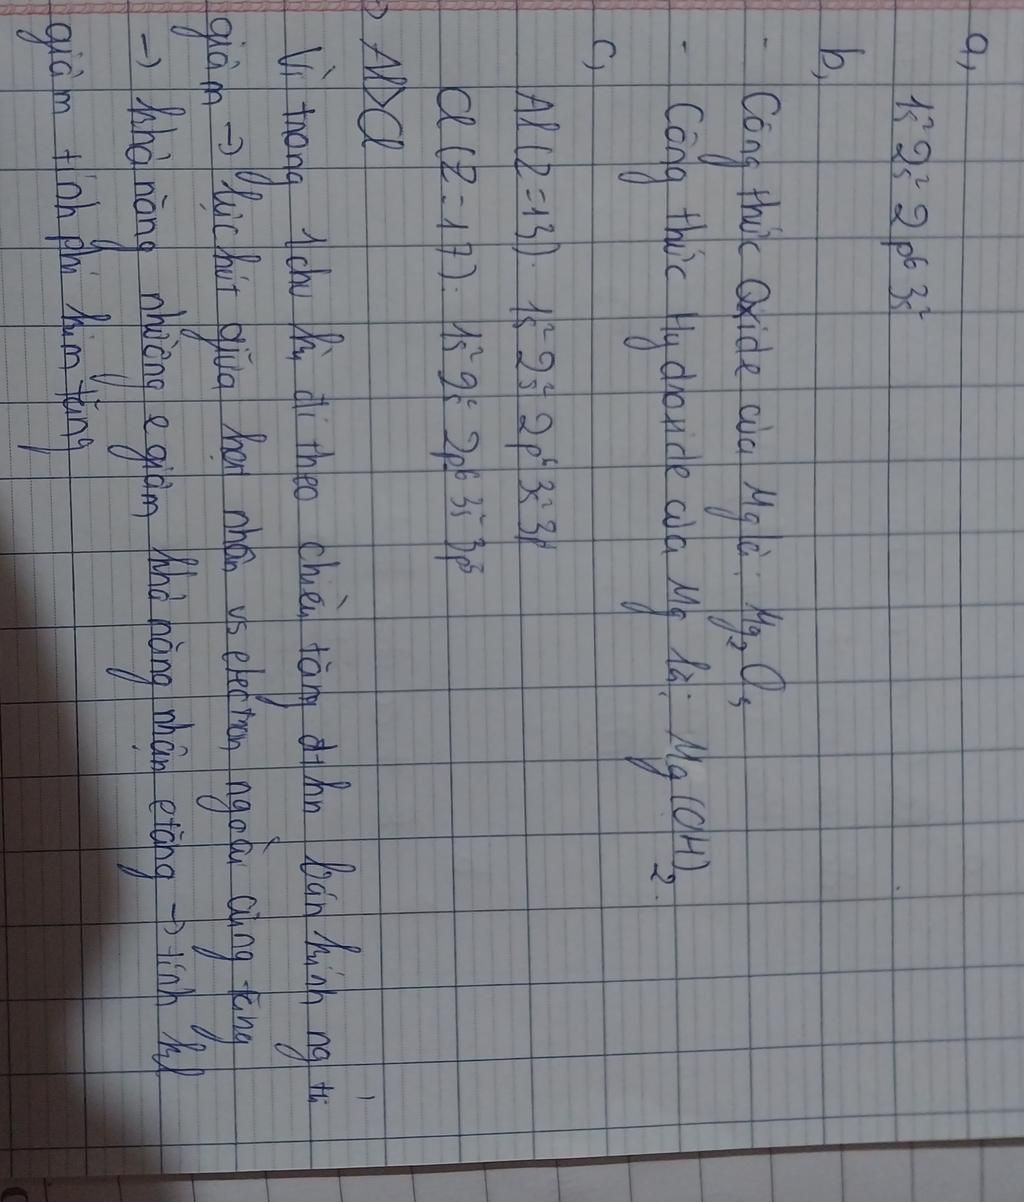 a,
1s² 2s² 2p⁶ 3s²
b,
- Công thức Oxide của Mg là: Mg₂O₃
- Công thức Hydroxide của Mg là: Mg(OH)₂.
c,
Al (Z=13): 1s² 2s² 2p⁶ 3s² 3p¹
Cl (Z=17): 1s² 2s² 2p⁶ 3s² 3p⁵
=> Al>Cl
Vì trong 1 chu kì, đi theo chiều tăng đthn bán kính ng tử
giảm → lực hút giữa hạt nhân vs electron ngoài cùng tăng
→ khả năng nhường e giảm, khả năng nhận e tăng → tính kl
giảm tính phi kim tăng